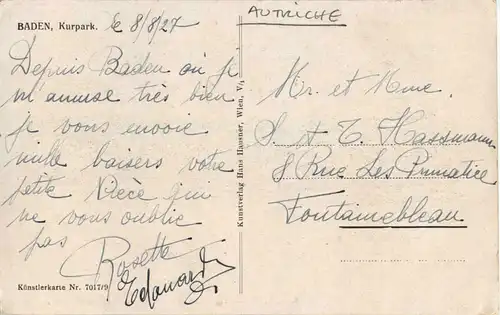 BADEN, Kurpark.
le 8/8/27
Depuis Baden où je
m'amuse très bien
je vous envoie
mille baisers votre
petite Nièce qui
ne vous oublie
pas
Rosette
Edouard
Künstlerkarte Nr. 7017/9
Kunstverlag Hans Hausner, Wien, V/1
AUTRICHE
Mr. et Mme.
S. & T. Hassmann
8 Rue Les Primatice
Fontainebleau